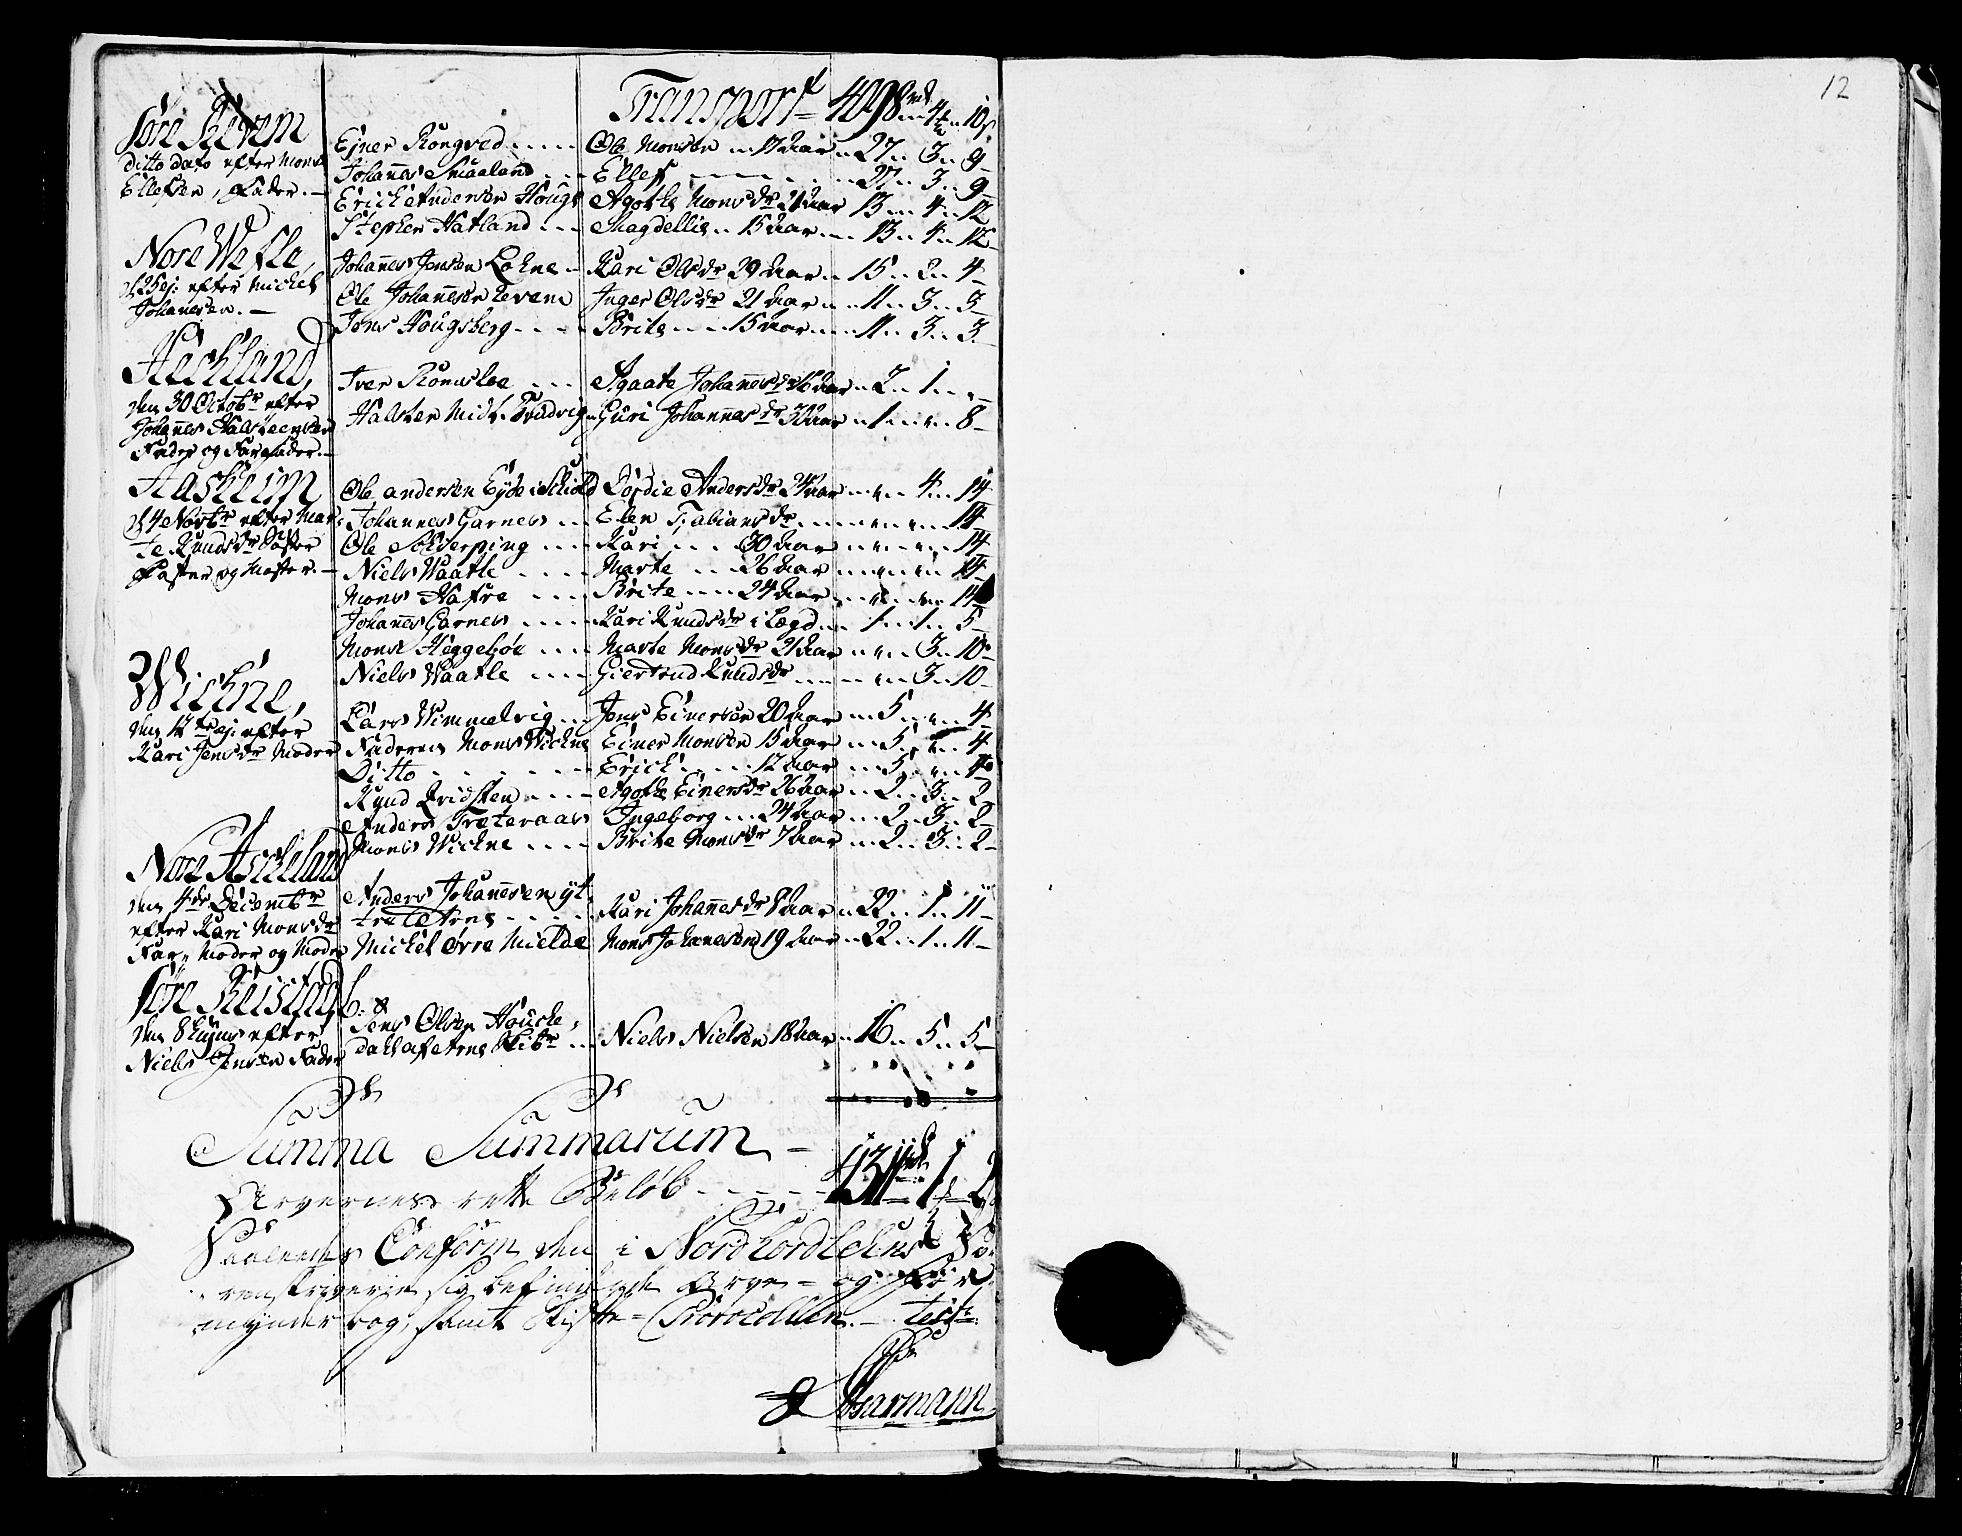 12
Transport = 498 rd 4 10 s
Søre Tevem
ditto dato efter Mons
Ellefsen, Fader. —
Ejner Rongved — Ole Monsen 17 Aar 27 3 9
Johannes Smaaland — Ellef — 27 3 9
Erick Andersen Hougs — Agothe Mons dr 21 Aar 13 4 12
Stephen Hatland — Magdellie 15 Aar 13 4 12
Nore Wefle,
d 25 ej. efter Michel
Johannesen. —
Johannes Jensen Lohne — Kari Ols dr 29 Aar 15 2 4
Ole Johannesen Tevem Inger Ols dr 21 Aar 11 3 3
Jens Hougsberg — Brite 15 Aar 11 3 3
Heckland,
den 30 Octobr efter
Johannes Halsteensen
Fader og Farfader. —
Iver Romsloe — Agaate Johannes dr 26 Aar 2 1 „
Halsten Midt Tvedvig Guri Johannes dr 32 Aar 1 „ 8
Aasheim
d 4 Novbr efter Mar-
te Knuds dr Søster
Faster og Moster. —
Ole Andersen Eyde i Schiold Lordie Anders dr 24 Aar „ 4 14
Johannes Garnes — Elen Fabians dr „ „ 14
Ole — Kari 30 Aar „ „ 14
Niels Waatle — Marte 26 Aar „ „ 14
Mons Hafre — Brite 24 Aar „ „ 14
Johannes Garnes — Kari Knuds dr i Lægd 1 1 5
Mons Heggebøe — Marte Mons dr 21 Aar „ 3 10
Niels Waatle — Giertrud Knuds dr „ 3 10
Wichne,
den 17 ej. efter
Kari Jens dr Moder
Lars Wimmelvig — Jens Einersen 20 Aar 5 „ 4
Faderen Mons Wichne Einer Monsen 15 Aar 5 „ 4
Ditto — Erick 12 Aar 5 „ 4
Knud Qvidsten — Agothe Einers dr 26 Aar 2 3 2
Anders Træteraas Ingeborg 24 Aar 2 3 2
Mons Wichne — Brite Mons dr 7 Aar 2 3 2
Nore Ascheland
den 4de Decembr
efter Kari Mons dr
Far Moder og Moder
Anders Johannesen yt-
tre Arne — Kari Johannes dr 8 Aar 22 1 11
Michel Øvre Mielde Mons Johannesen 19 Aar 22 1 11
Søre Reistad,
den 8 efter
Niels Jensen Fader
Jens Olsen Houcke,
dahl af Arne Skibr — Niels Nielsen 18 Aar 16 5 5
Summa Summarum —
Arvernes rette Beløb — 1 2
Saaledes Conform den i Nordhordlehns So-
renskriverie sig befindende Arve- og For
mynder bog, samt Skifte-Protocollen. — test:
Garmann